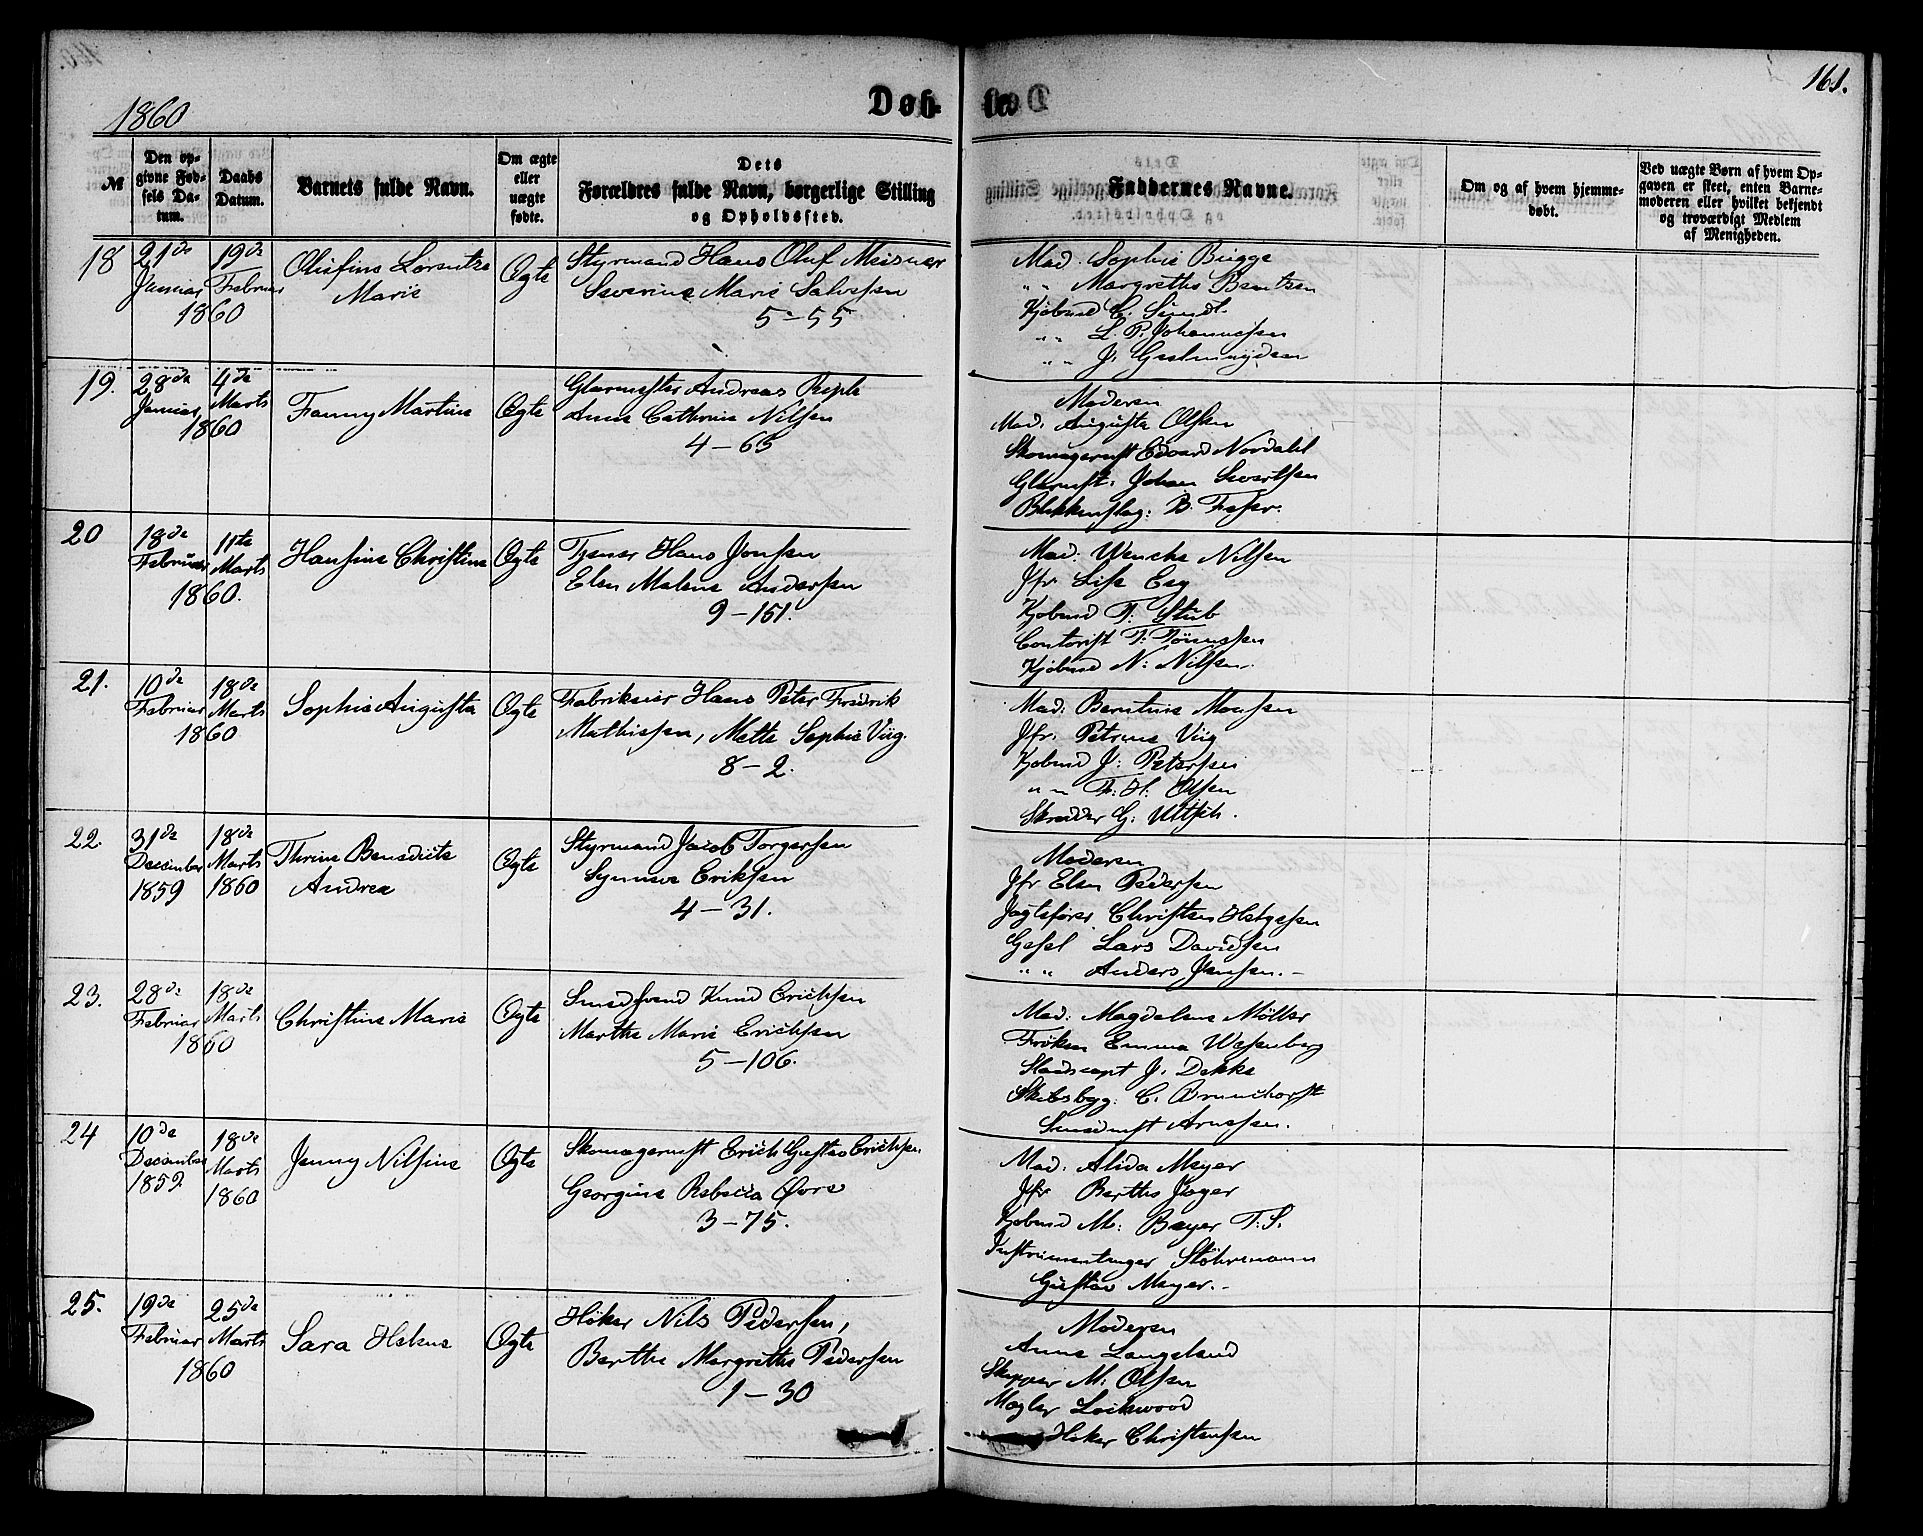 161.
1860
Døb-
te
№
Den op-
givne Fød-
sels Da-
tum.
Daabs
Datum.
Barnets fulde Navn.
Om ægte
eller
uægte
fødte.
Dets
Forældres fulde Navn, borgerlige Stilling
og Opholdssted.
Faddernes Navne.
Om og af hvem hjemme-
døbt.
Ved uægte Børn af hvem Op-
gaven er skeet, enten Barne-
moderen eller hvilket bekjendt
og troværdigt Medlem
af Menigheden.
18
21de
Januar
19de
Februar
1860
Olufine Lorentze
Marie
Ægte
Styrmand Hans Oluf Meisner
Severine Marie Salvesen
5-55
Mad. Sophie Brügge
" " Margrethe Bentzen
Kjøbmd C. Sundt
" " L. P. Johannessen
" " J.
19.
28de
Januar
4de
Marts
1860
Fanny Martine
Ægte
Glarmester Andreas
Anne Cathrine Nilsen
4-65
Moderen
Mad. Augusta Olsen
Skomagermst Edvard Nordahl
Glarmst. Johan Sivertsen
Blikkenslag: B.
20
18de
Februar
11te
Marts
1860.
Hansine Christine
Ægte
Tjener Hans Jonsen
Elen Malene Andersen
9-151.
Mad. Wenche Nilsen
Jfr Lise Eeg
Kjøbmd T. Stub
Contorist T. Tønnessen
Kjøbmd N: Nilsen.
21.
10de
Februar
18de
Marts
1860
Sophie Augusta
Ægte
Fabrikeier Hans Peter Fredrik
Mathissen, Mette Sophie Viig.
8-2.
Mad: Berntine Monsen
Jfr. Petrine Viig
Kjøbmd J: Petersen
" " T. H. Olsen
Skredder G.
22.
31de
December
1859
18de
Marts
1860
Thrine Benedicte
Andrea
Ægte
Styrmand Jacob Torgersen
Synneve Eriksen
4-31.
Moderen
Jfr Elen Pedersen
Jagtefører Christen Helgesen
Gesel Lars Davidsen
" " Anders Jensen.
23.
28de
Februar
18de
Marts
1860
Christine Marie
Ægte
Smedsvend Knud Erichsen
Marthe Marie Erichsen
5-106.
Mad: Magdalene Møller
Frøken Emma Wesenberg
Stadscapt J. Dekke
Skibsbyg: C. Brunchorst
Smedmst Arnesen.
24
10de
December
1859
18de
Marts
1860
Jenny Nilsine
Ægte
Skomagermst Erich Gustav Erichsen
Georgine Rebecca Øvre
3-75.
Mad. Alida Meyer
Jfr Berthe Jæger
Kjøbmd M: Beyer T. S.
Instrumentmager Støhrmann
Gustav Meyer.
25.
19de
Februar
25de
Marts
1860
Sara Helene
Ægte
Høker Nils Pedersen,
Berthe Margrethe Pedersen
1-30
Moderen
Anne Langeland
Skipper M. Olsen
Mægler Lockwood
Høker Christensen